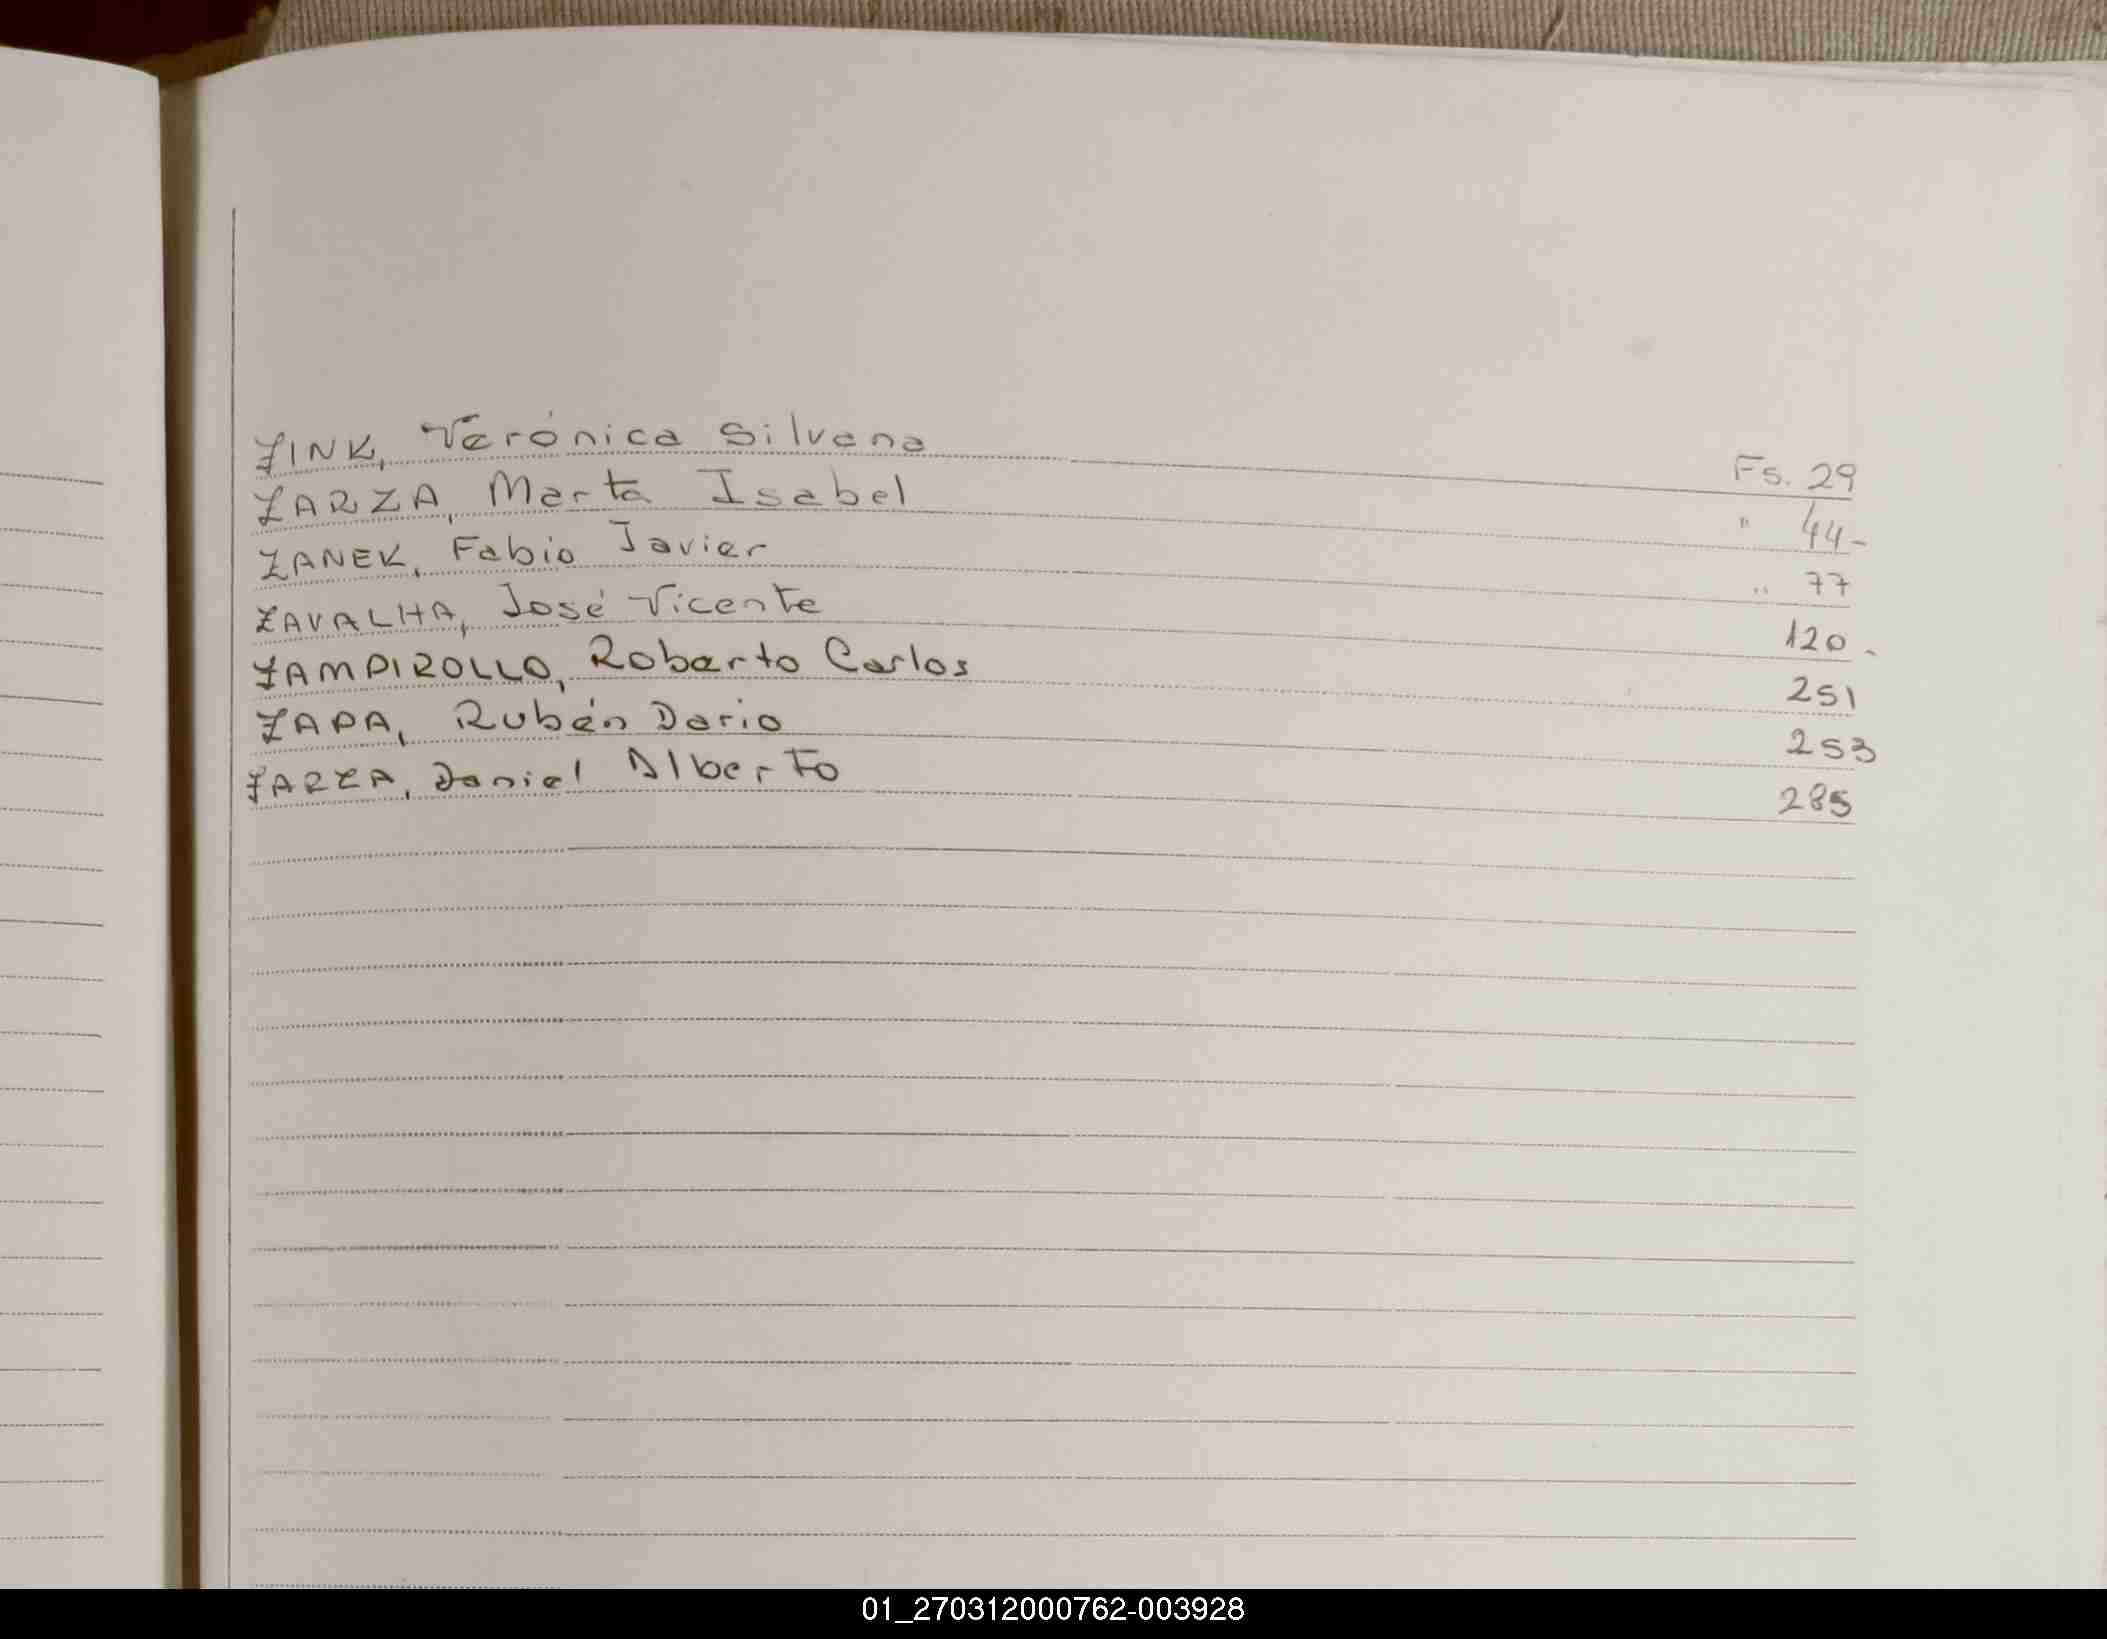 ZINK, Verónica Silvana Fs. 29
ZARZA, Marta Isabel " 44-
ZANEK, Fabio Javier " 77
ZAVALHA, José Vicente 120-
ZAMPIROLLO, Roberto Carlos 251
ZAPA, Rubén Dario 253
ZARZA, Daniel Alberto 285
01_270312000762-003928